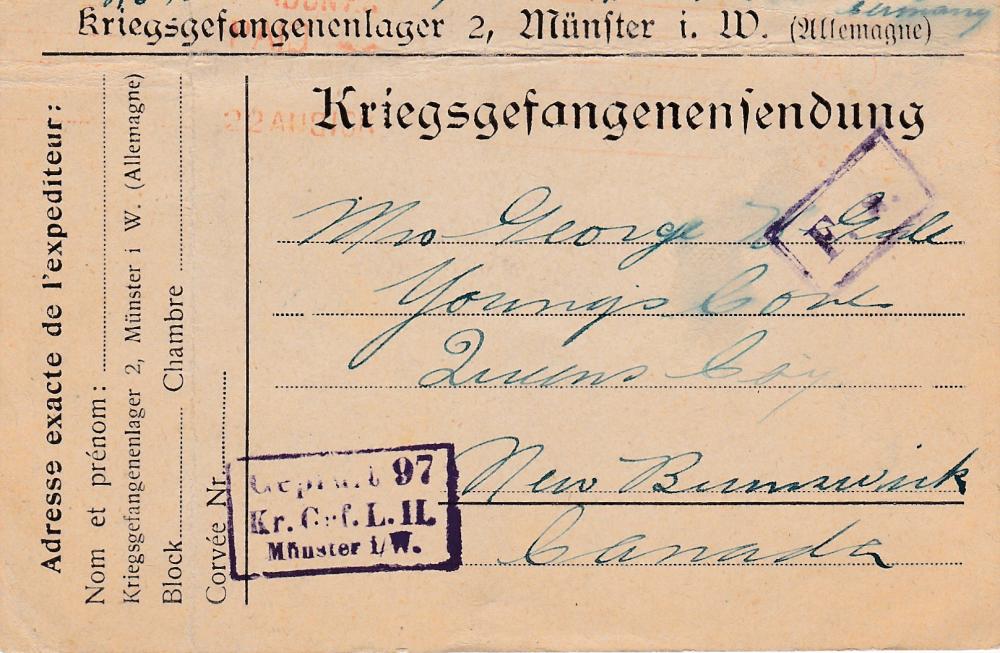 Germany
Kriegsgefangenenlager 2, Münster i. W. (Allemagne)
Kriegsgefangenensendung
22 AUG
F
Mrs George
Youngs Cove
Queens Coy
New Brunswick
Canada
Geprüft 97
Kr. Gef. L. II.
Münster i/W.
Adresse exacte de l'expediteur:
Nom et prénom:
Kriegsgefangenenlager 2, Münster i W. (Allemagne)
Block Chambre
Corvée Nr.